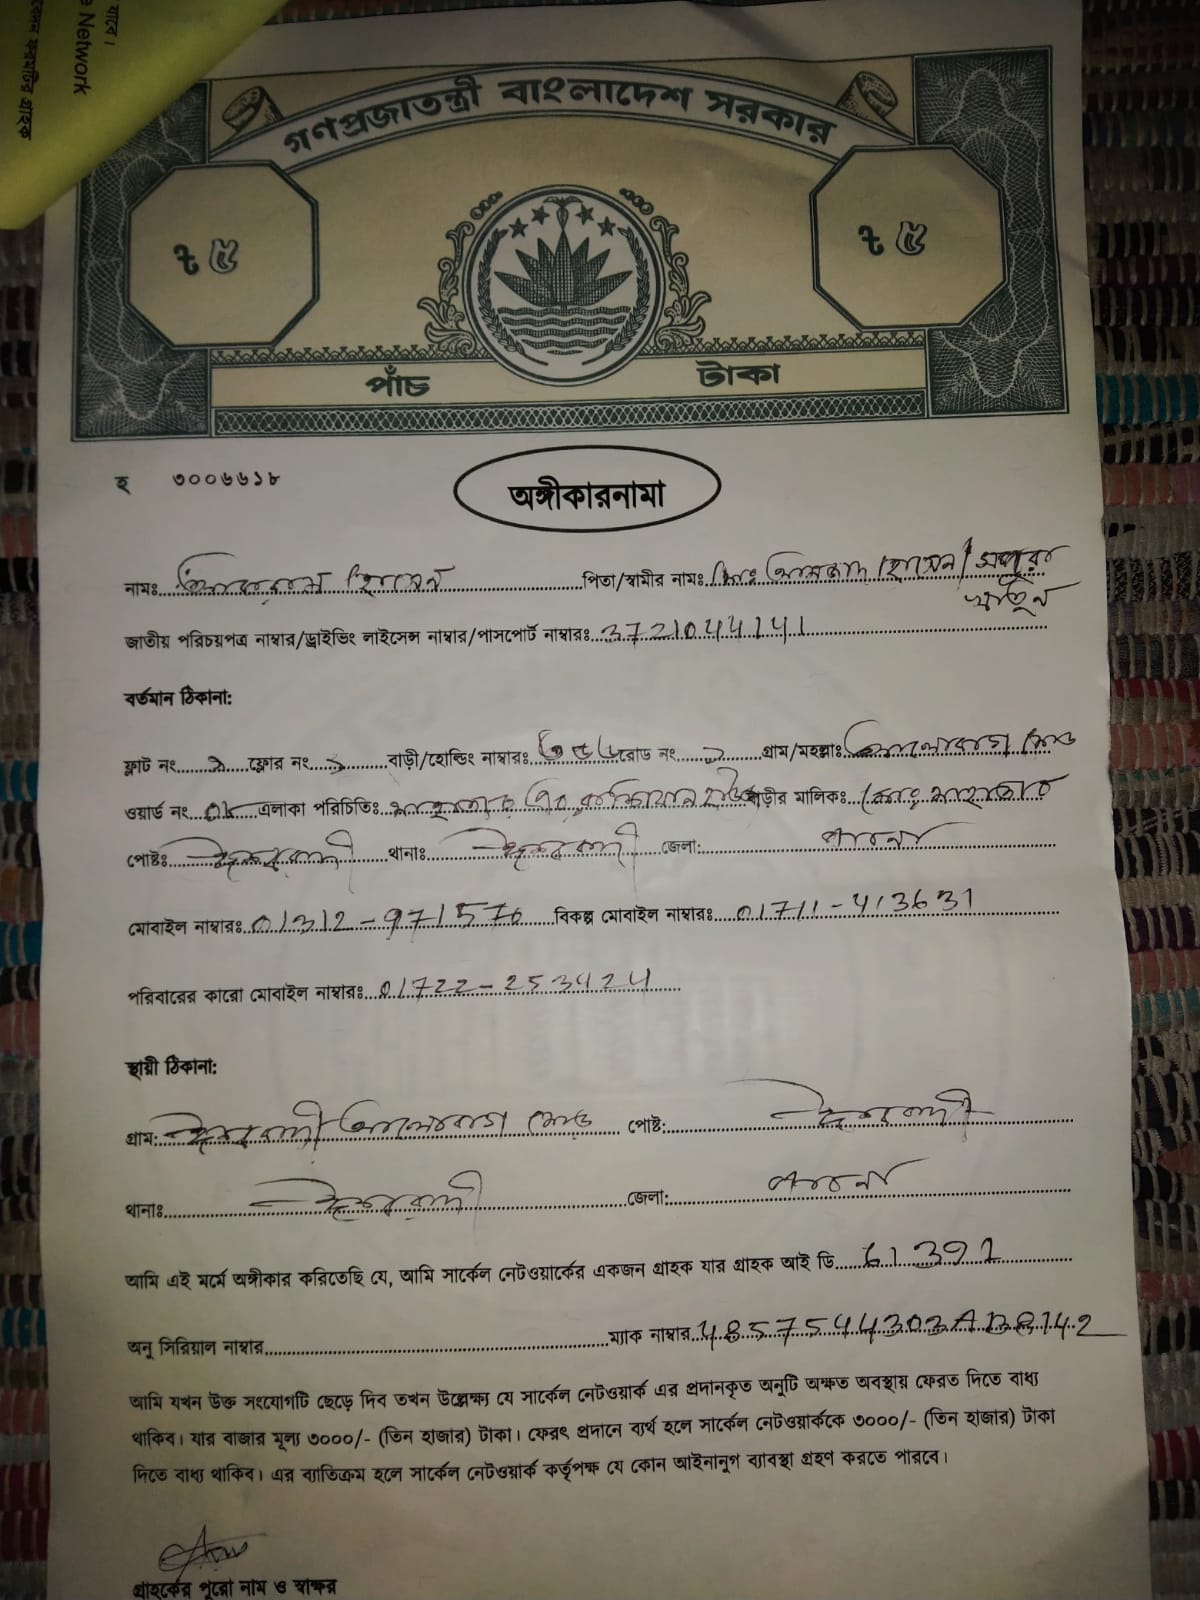 যাবে।
e Network
গণপ্রজাতন্ত্রী বাংলাদেশ সরকার
৳ ৫
৳ ৫
পাঁচ টাকা
হ ৩০০৬৬১৮
অঙ্গীকারনামা
নামঃ হোসেন পিতা/স্বামীর নামঃ মোঃ হোসেন/
খাতুন
জাতীয় পরিচয়পত্র নাম্বার/ড্রাইভিং লাইসেন্স নাম্বার/পাসপোর্ট নাম্বারঃ 3721044141
বর্তমান ঠিকানা:
ফ্লাট নং ফ্লোর নং বাড়ী/হোল্ডিং নাম্বারঃ রোড নং গ্রাম/মহল্লাঃ রোড
ওয়ার্ড নং এলাকা পরিচিতিঃ বাড়ীর মালিক: মোঃ
পোষ্টঃ ঈশ্বরদী থানাঃ ঈশ্বরদী জেলা: পাবনা
মোবাইল নাম্বারঃ 01312-971576 বিকল্প মোবাইল নাম্বারঃ 01711-413631
পরিবারের কারো মোবাইল নাম্বারঃ 01722-253424
স্থায়ী ঠিকানা:
গ্রাম: ঈশ্বরদী রোড পোষ্ট: ঈশ্বরদী
থানাঃ ঈশ্বরদী জেলা: পাবনা
আমি এই মর্মে অঙ্গীকার করিতেছি যে, আমি সার্কেল নেটওয়ার্কের একজন গ্রাহক যার গ্রাহক আই ডি 61391
অনু সিরিয়াল নাম্বার ম্যাক নাম্বার 48575444303AB8142
আমি যখন উক্ত সংযোগটি ছেড়ে দিব তখন উল্লেক্ষ্য যে সার্কেল নেটওয়ার্ক এর প্রদানকৃত অনুটি অক্ষত অবস্থায় ফেরত দিতে বাধ্য
থাকিব। যার বাজার মূল্য ৩০০০/- (তিন হাজার) টাকা। ফেরৎ প্রদানে ব্যর্থ হলে সার্কেল নেটওয়ার্ককে ৩০০০/- (তিন হাজার) টাকা
দিতে বাধ্য থাকিব। এর ব্যাতিক্রম হলে সার্কেল নেটওয়ার্ক কর্তৃপক্ষ যে কোন আইনানুগ ব্যাবস্থা গ্রহণ করতে পারবে।
গ্রাহকের পুরো নাম ও স্বাক্ষর